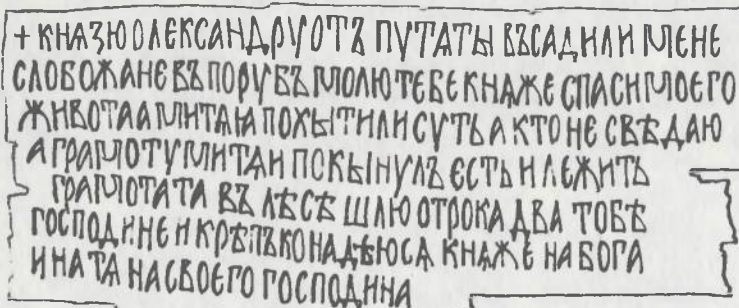 + КНѦЗЮОЛЕКСАНДРУОТЪ ПУТАТЫ ВЪСАДИЛИ МЕНЕ
СЛОБОЖАНЕВЪПОРУБЪМОЛЮТЕБЕКНѦЖЕ СПАСИМОЕГО
ЖИВОТААМИТАꙖПОХЫТИЛИСУТЬАКТОНЕСВѢДАЮ
АГРАМОТУМИТАИПОКЫНУЛЪ ЕСТЬИЛЕЖИТЬ
ГРАМОТАТА ВЪ ЛѢСѢ ШЛЮОТРОКАДВА ТОБѢ
ГОСПОДИНЕИКРѢПЪКОНАДѢЮСѦ КНѦЖЕ НАБОГА
ИНАТѦ НАСВОЕГО ГОСПОДИНА